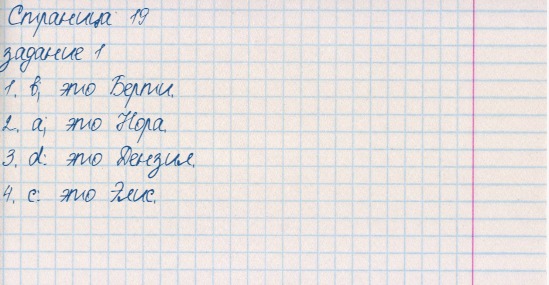 Страница 19
задание 1
1. b; это Берти.
2. a; это Нора.
3. d: это Дензил.
4. c: это Элис.